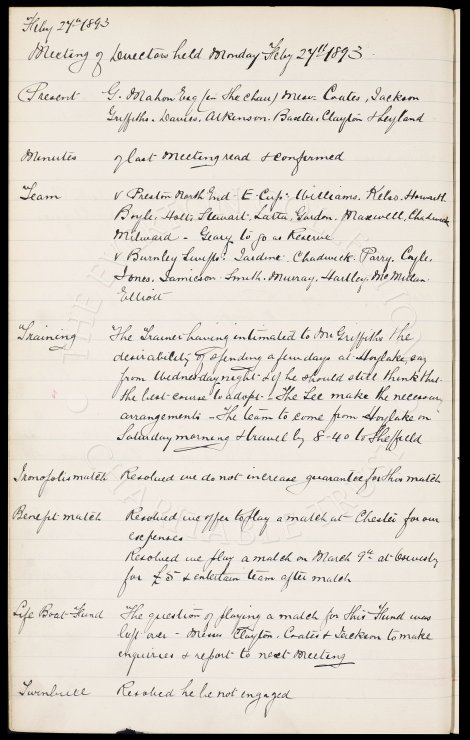 Feby 27th 1893
Meeting of Directors held Monday Feby 27th 1893.
Present G. Mahon Esq (in the chair) Messrs. Coates, Jackson
Griffiths. Davies. Atkinson. Baxter. Clayton & Leyland
Minutes of last Meeting read & confirmed
Team v Preston North End E. Cup. Williams. Kelso. Howarth
Boyle. Holt. Stewart. Latta. Gordon. Maxwell. Chadwick
Milward - Geary to go as Reserve
v Burnley Swifts. Jardine. Chadwick. Parry. Coyle.
Jones. Jamieson. Smith. Murray. Hartley. McMillan.
Elliott
Training The Trainer having intimated to Mr Griffiths the
desirability of spending a few days at Hoylake, say
from Wednesday night & if he should still think this
the best course to adopt - The Sec make the necessary
arrangements - The team to come from Hoylake on
Saturday morning & travel by 8-40 to Sheffield
Ironopolis match Resolved we do not increase guarantee for this match
Benefit match Resolved we offer to play a match at Chester for our
expenses
Resolved we play a match on March 9th at Oswestry
for £5 & entertain team after match
Life Boat Fund The question of playing a match for this Fund was
left over - Messrs Clayton, Coates & Jackson to make
enquiries & report to next Meeting
Turnbull Resolved he be not engaged